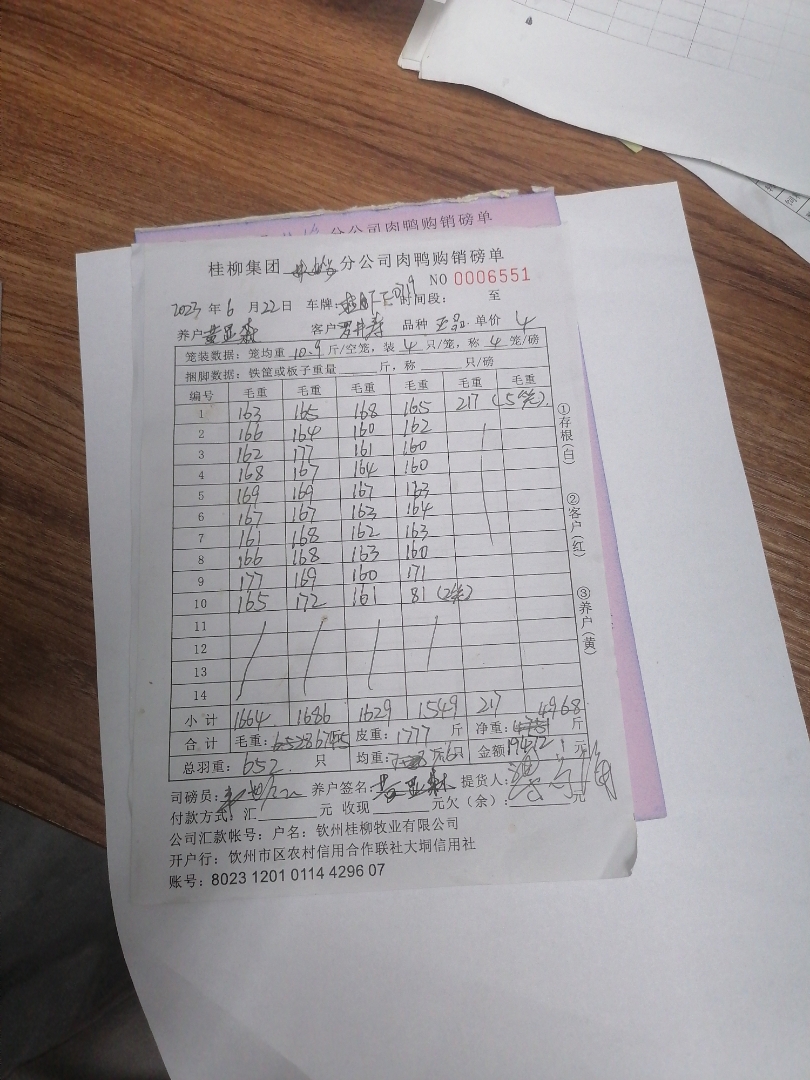 分公司肉鸭购销磅单
桂柳集团 分公司肉鸭购销磅单
NO 0006551
2023年6月22日 车牌: 时间段: 至
养户 客户 品种 单价 4
笼装数据: 笼均重 10.9 斤/空笼, 装 4 只/笼, 称 4 笼/磅
捆脚数据: 铁筐或板子重量 斤, 称 只/磅
编号 毛重 毛重 毛重 毛重 毛重 毛重
1 163 165 168 165 217 (5笼)
2 166 164 160 162
3 162 177 161 160
4 168 167 164 160
5 169 169 167 163
6 167 167 163 164
7 161 168 162 163
8 166 168 163 160
9 177 169 160 171
10 165 172 161 81 (2笼)
11
12
13
14
小计 1664 1686 1629 1549 217 4968
合计 毛重: 6745 皮重: 1777 斤 净重: 斤
总羽重: 652 只 均重: 斤/只 金额 元
司磅员: 养户签名: 提货人:
付款方式: 汇 元 收现 元欠(余): 元
公司汇款帐号: 户名: 钦州桂柳牧业有限公司
开户行: 钦州市区农村信用合作联社大垌信用社
账号: 8023 1201 0114 4296 07
①存根(白)
②客户(红)
③养户(黄)